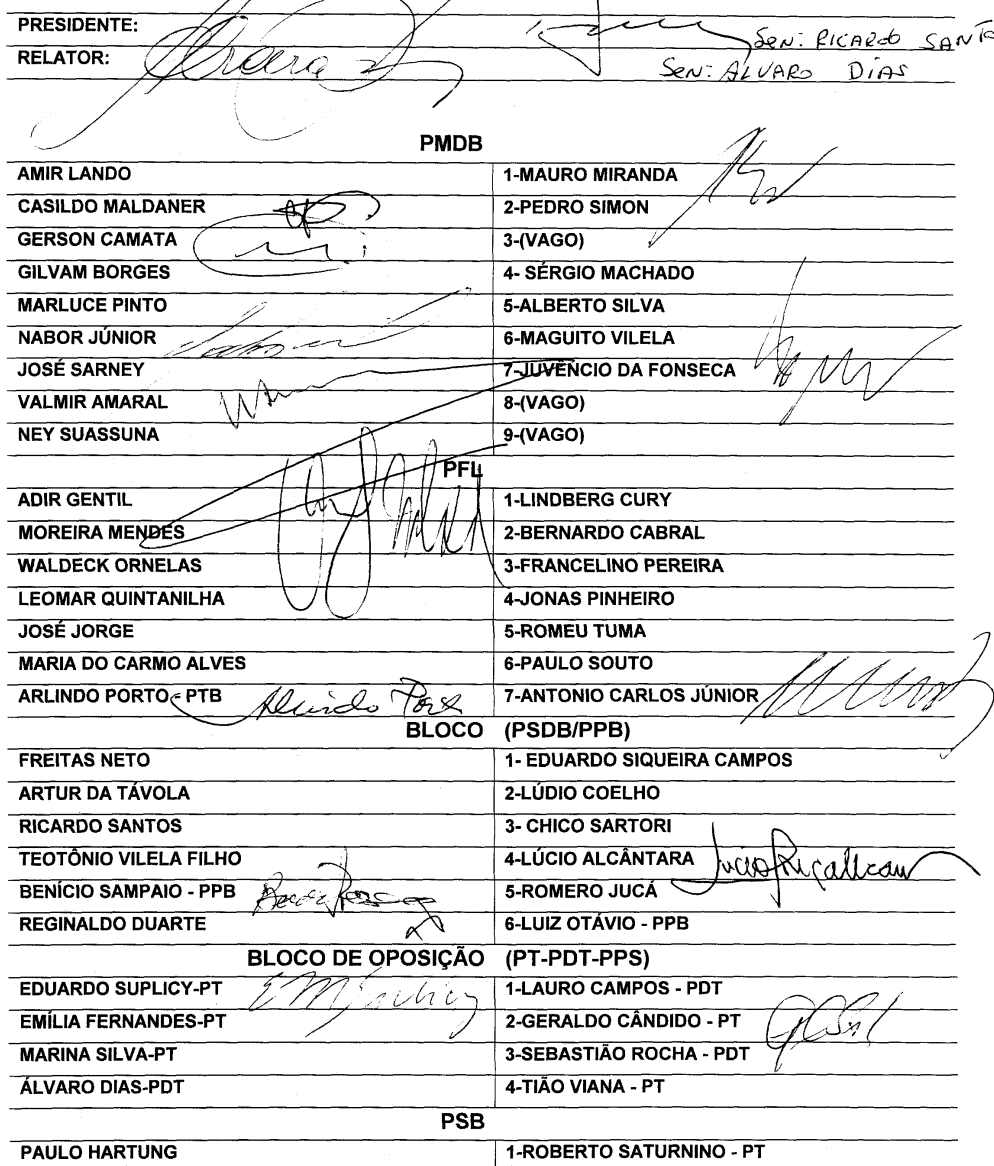 PRESIDENTE:
Sen: RICARDO SANTO
RELATOR:
Sen: ALVARO DIAS
PMDB
AMIR LANDO 1-MAURO MIRANDA
CASILDO MALDANER 2-PEDRO SIMON
GERSON CAMATA 3-(VAGO)
GILVAM BORGES 4- SÉRGIO MACHADO
MARLUCE PINTO 5-ALBERTO SILVA
NABOR JÚNIOR 6-MAGUITO VILELA
JOSÉ SARNEY 7-JUVÊNCIO DA FONSECA
VALMIR AMARAL 8-(VAGO)
NEY SUASSUNA 9-(VAGO)
PFL
ADIR GENTIL 1-LINDBERG CURY
MOREIRA MENDES 2-BERNARDO CABRAL
WALDECK ORNELAS 3-FRANCELINO PEREIRA
LEOMAR QUINTANILHA 4-JONAS PINHEIRO
JOSÉ JORGE 5-ROMEU TUMA
MARIA DO CARMO ALVES 6-PAULO SOUTO
ARLINDO PORTO - PTB 7-ANTONIO CARLOS JÚNIOR
BLOCO (PSDB/PPB)
FREITAS NETO 1- EDUARDO SIQUEIRA CAMPOS
ARTUR DA TÁVOLA 2-LÚDIO COELHO
RICARDO SANTOS 3- CHICO SARTORI
TEOTÔNIO VILELA FILHO 4-LÚCIO ALCÂNTARA
BENÍCIO SAMPAIO - PPB 5-ROMERO JUCÁ
REGINALDO DUARTE 6-LUIZ OTÁVIO - PPB
BLOCO DE OPOSIÇÃO (PT-PDT-PPS)
EDUARDO SUPLICY-PT 1-LAURO CAMPOS - PDT
EMÍLIA FERNANDES-PT 2-GERALDO CÂNDIDO - PT
MARINA SILVA-PT 3-SEBASTIÃO ROCHA - PDT
ÁLVARO DIAS-PDT 4-TIÃO VIANA - PT
PSB
PAULO HARTUNG 1-ROBERTO SATURNINO - PT